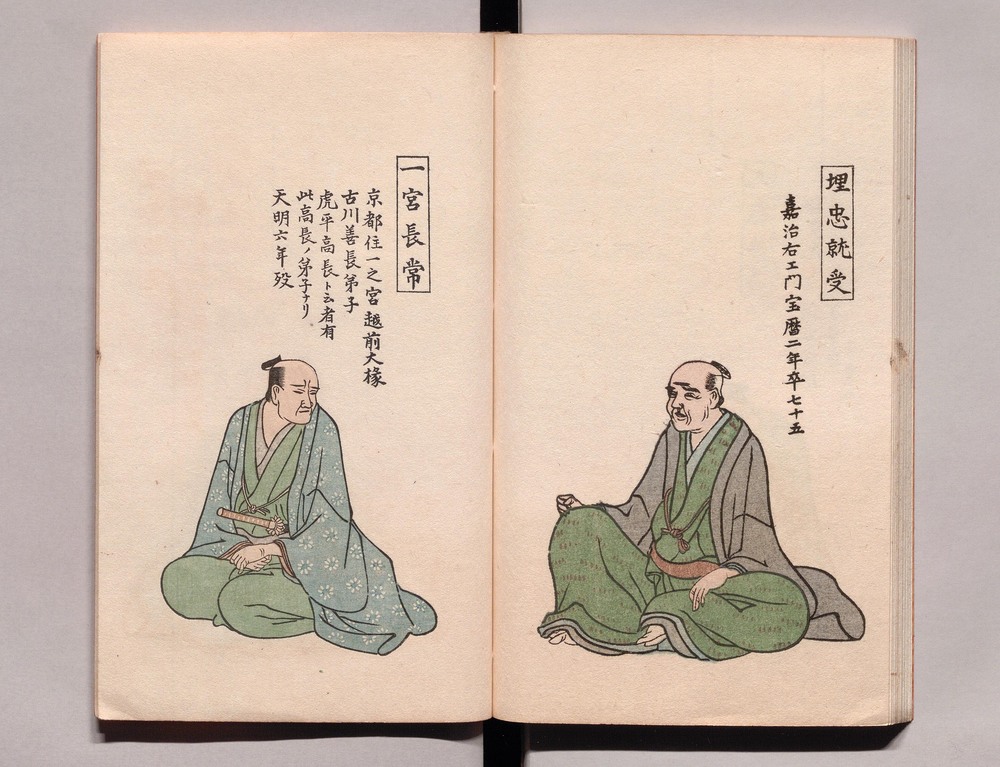 埋忠就受
嘉治右エ門宝暦二年卒七十五
一宮長常
京都住一之宮越前大掾
古川善長弟子
虎平高長ト云者有
此高長ノ弟子ナリ
天明六年歿